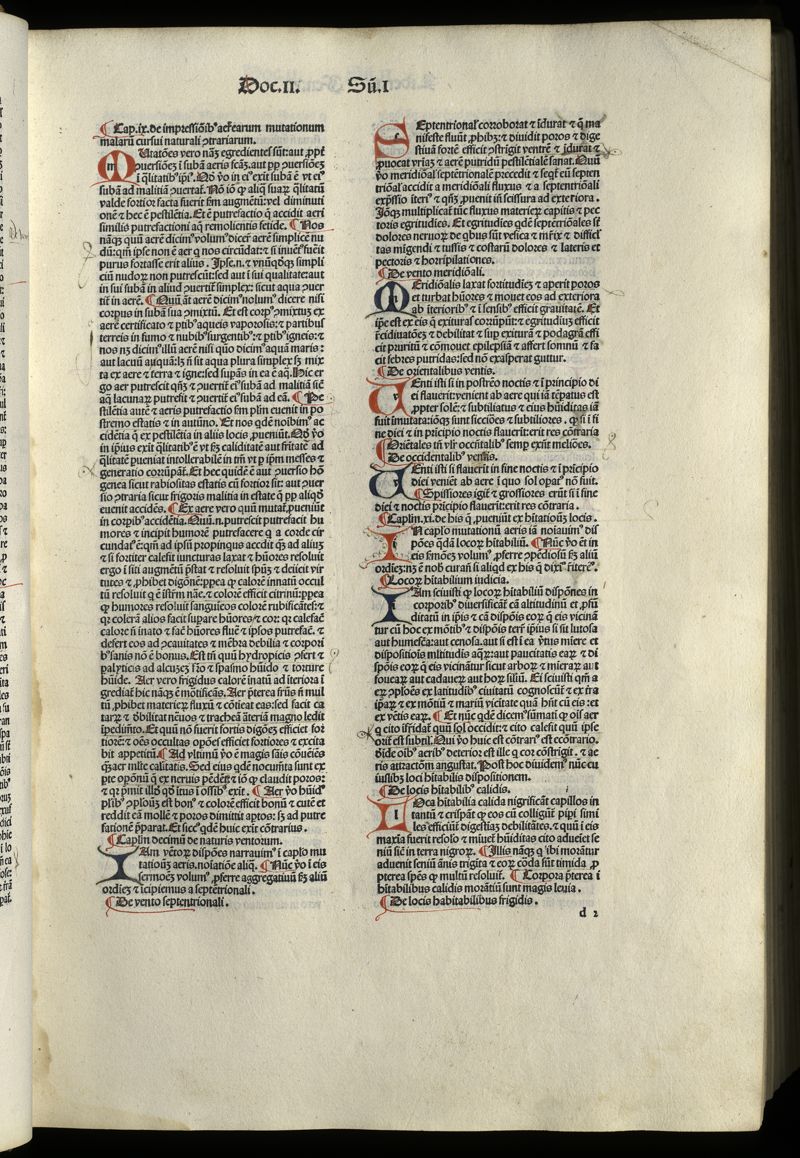 Doc.II. Sū.I
¶ Cap.ix.de impressiōib⁹ aeřearum mutationum
malarū cursui naturali ɔtrariarum.
MUtatōes vero nāqꝫ egredientes sūt:aut ꝓpť
ɔuersiōeꝫ ī subā aeris
ī q̄litatib⁹ ip̄i⁹. Nō
subā ad malitiā ɔuertať. Nō iō ꝙ aliq̄ suaꝝ q̄litatū
valde fortior facta fuerit fm augmētū:vel diminuti
onē ⁊ hec ē pestilētia. Et ē putrefactio q̄ accidit aeri
similis putrefactioni aq̄ remolientis fetide. ¶ Nos
nāqꝫ quū aerē dicim⁹ volum⁹ diceř aerē simplicē nu
dū:qm̄ ipse non ē aer q nos circūdat:⁊ si inuēt⁹ fuēit
purus fortasse erit alius. Ipse.n.⁊ vnūqđqꝫ simpli
ciū nudoꝝ non putrescūt:sed aut ī sui qualitate:aut
in sui subā in aliud ɔuertīt simplex: sicut aqua ɔuer
tiť in aerē. ¶ Quū āt aerē dicim⁹ nolum⁹ dicere nisi
corpus in subā sua ɔmixtū. Et est corp⁹ ɔmixtuꝫ ex
aerē certificato ⁊ ptib⁹ aqueis vaporosis: ⁊ partibus
terreis in fumo ⁊ nubib⁹ surgentib⁹: ⁊ ptib⁹ igneis: ⁊
nos nꝫ dicim⁹ illū aerē nisi quō dicim⁹ aquā maris:
aut lacuū aiquā:lꝫ n̄ sit aqua plura simplex sꝫ mix
ta ex aere ⁊ terra ⁊ igne:sed supās in ea ē aq̄. Hic er
go aer putrescit
aq̄ lacunaꝝ putresit ⁊ ɔuertiť ei⁹ subā ad eā. ¶ Pe
stilētia autē ⁊ aeris putrefactio fm plin euenit in po
stremo estatis ⁊ in autūno. Et nos qđē noībim⁹ ac
cidētia q̄ ex pestilētia in aliis locis ꝓueniūt. Nō ṽo
in ip̄ius exit q̄litatib⁹ ē vt sꝫ caliditatē aut fřitatē ad
q̄litatē pueniat intollerabilē in tm̄ vt ꝑ ip̄m messes ⁊
generatio corrūpāť. Et hec quidē ē aut ɔuersio hō
genea sicut rabiositas estatis cū fortior sit: aut ɔuer
sio ɔtraria sicut frigoris malitia in estate q̄ pp aliqđ
euenit accidēs. ¶ Ex aere vero quū mutať,pueniūt
in corpib⁹ accidētia. Quū.n.putrescit putrefacit hu
mores ⁊ incipit humorē putrefacere q̄ a corde cir
cundat⁹ ē:qm̄ ad ipsū propinquus accdit q̄ꝫ ad aliuꝫ
⁊ si fortiter calefit iuncturas laxat ⁊ hūores resoluit
ergo ī siti augmētū p̄stat ⁊ resoluit spūꝫ ⁊ deiicit vir
tutes ⁊ ꝓhibet digōnē:ppea ꝙ calorē innatū occul
tū resoluit q̄ ē īstrm̄ nāe.⁊ colorē efficit citrinū:ppea
ꝙ humores resoluit sanguīeos colorē rubificātes:⁊
qꝛ colerā alios facit supare hūores ⁊ cor: qꝛ calefać
calore ñ inato ⁊ fać hūores fluē ⁊ ipsos putrefać. ⁊
desert eos ad ɔcauitates ⁊ mēbra debilia ⁊ corpori
b⁹ sanis nō ē bonus. Est tn̄ quū hydropicis ɔfert ⁊
palyticis ad alcuzeꝫ fřo ⁊ spasmo hūido ⁊ torture
hūide. Aer vero frigidus calorē inatū ad iteriora ī
grediať hic nāqꝫ ē mōtificās. Aer pterea frūs ñ mul
tū ,phibet materieꝝ fluxū ⁊ cōtieat eas:sed facit ca
tarꝝ ⁊ đbilitat nēuos ⁊ tracheā āteriā magno ledit
īpedimēto. Et quū nō fuerit fortis digōeꝫ efficiet for
tiorē:⁊ oēs occultas opōes efficiet fortiores ⁊ excita
bit appetitū. ¶ Ad vltimū ṽo ē magis sais cōuēiēs
q̄ꝫ aer mltē calitatis. Sed eius qđē nocumta sunt ex
pte opōnū q̄ ex neruis pēdēt:⁊ iō ꝙ claudit poros:
⁊ qꝛ p̄mit illđ qđ ītus ī ossib⁹ exit. ¶ Aer ṽo hūid⁹
plib⁹ ɔplōuꝫ est bon⁹ ⁊ colorē efficit bonū ⁊ cutē et
reddit eā mollē ⁊ poros dimittit aptos: sꝫ ad putre
factionē p̄parat. Et sicc⁹ qđē huic exīt cōtrarius.
¶ Caplm̄ decimū de naturis ventorum.
IAm vētoꝝ dispōes narrauim⁹ ī caplo mu
tatiouꝫ aeris.noīatiōe aliq̄. ¶ Nūc ṽo ī eis
sermoēꝫ volum⁹ ,pferre aggregatiuū sꝫ aliū
ordieꝫ ⁊ īcipiemus a septētrionali.
¶ De vento septentrionali.
SEptentrionał corroborat ⁊ īdurat ⁊ q̄ ma
nifeste fluūt ,phibꝫ:⁊ diuidit poros ⁊ dige
stiuā fortē efficit ɔstrigit ventrē ⁊ īdurat ⁊
puocat vriaꝫ ⁊ aerē putridū pestilētialē sanat. Quū
ṽo meridionał septētrionałe precedit ⁊ seqť eū septen
triōał accidit a meridionali fluxus ⁊ a septentriōali
exp̄ssio īteri⁹ ⁊ qñqꝫ ,puenit iñ scissura ad exteriora.
Iōqꝫ multiplicať tūc fluxus materieꝝ capitis ⁊ pec
toris egritudies. Et egritudies qđē septētriōales sť
dolores neruoꝝ de qbus sūt vesica ⁊ mřix ⁊ difficł
tas migendi ⁊ tussis ⁊ costarū dolores ⁊ lateris et
pectoris ⁊ horripilationes.
¶ De vento meridiōali.
MEridiōalis laxat fortitudieꝫ ⁊ aperit poros
et turbat hūores ⁊ mouet eos ad exteriora
ab iteriorib⁹ ⁊ ī sensib⁹ efficit grauitatē. Et
ip̄e est ex eis q̄ exituras corrūpūt:⁊ egritudiuꝫ efficit
řcidiuatōeꝫ ⁊ debilitat ⁊ sup exiturā ⁊ podagrā effi
cit pruritū ⁊ cōmouet epilepsiā ⁊ affert somnū ⁊ fa
cit febres putridas:sed nō exasperat guttur.
¶ De orientalibus ventis.
UEnti isti si in postrēo noctis ⁊ ī principio di
ei flauerīt:venient ab aere qui iā tēpatus est
,ppter solē: ⁊ subtiliatus ⁊ eius hūiditas iā
fuit imutata:iōqꝫ sunt sicciōes ⁊ subtiliores. ꝙ si ī fi
ne diei ⁊ in pricipio noctis flauerit:erit res cōtraria
¶ Oriētales tn̄ vłr occītalib⁹ semꝑ exīt meliōes.
¶ De occidentalib⁹ ventis.
UEnti isti si flauerit in fine noctis ⁊ ī prīcipio
diei veniēt ab aere ī quo sol opat⁹ nō fuit.
¶ Spissiores igit̄ ⁊ grossiores erūt si ī fine
diei ⁊ noctis pricipio flauerit:erit res cōtraria.
¶ Caplm̄.xi.de his q̄ ,pueniūt ex hitatiōuꝫ locis.
IN caplo mutationū aeris iā noīauim⁹ dis
pōes qđā locoꝝ hītabiliū. ¶ Nūc ṽo ēt in
eis smōeꝫ volum⁹ ,pferre ɔpēdiosū sꝫ aliū
ordieꝫ:nꝫ ē nob curañ si aliqđ ex his q̄ dixi⁹ řiteret⁹.
¶ Locoꝝ hītabilium iudicia.
IAm sciuisti ꝙ locoꝝ hītabiliū dispōnes in
corporib⁹ diuersificāt eā altitudinū et ,pfū
ditatū in ip̄is ⁊ cā dispōis eoꝝ q̄ eis vicinā
tur cū hoc ex mōtib⁹ ⁊ dispōis teř ip̄ius si sit lutosa
aut humecta:aut cenosa.aut si est ī ea ṽtus miere et
dispositiōis młtitudis aq̄ꝝ:aut paucitatis eaꝝ ⁊ di
spōis eoꝝ q̄ eis vicināť sicut arboꝝ ⁊ mieraꝝ aut
foueaꝝ aut cadaueꝝ aut hoꝝ siliū. Ei sciuisti qm̄ a
er ɔplōes ex latitudib⁹ ciuitatū cognoscūť ⁊ ex řra
ip̄aꝝ ⁊ ex mōtiū ⁊ mariū vicitate quā hñt cū eis :et
ex vētis eaꝝ. ¶ Et nūc qđē dicem⁹ sūmati ꝙ ois aer
q̄ cito ifřidať quū sol occidit:⁊ cito calefit quū ipse
oriť est subtił. Qui ṽo huic est cōtrari⁹ est ecōtrario.
đide oīb⁹ aerib⁹ deterior est ille q̄ cor cōstrīgit. ⁊ ae
ris attractōm angustat. Post hoc diuidem⁹ nūc cu
iuslibꝫ loci hītabilis dispositionem.
¶ De locis hītabilib⁹ calidis.
LOca hītabilia calida nigrificāt capillos in
tantū ⁊ crispāt ꝙ eos cū colligūť pipi simi
les efficiūt digestiaꝫ debilitātes.⁊ quū ī eis
maxīa fuerit resolō ⁊ miueť hūiditas cito adueiet se
niū sic in terra nigroꝝ. ¶ Illis nāqꝫ q̄ ibi morātur
aduenit seniū ānis triginta ⁊ eoꝝ coꝛda sūt timida ,p
pterea spūs ꝙ multū resoluiť. ¶ Corpora p̄terea ī
hītabilibus calidis morātiū sunt magis leuia.
¶ De locis habitabilibus frigidis.
d 2